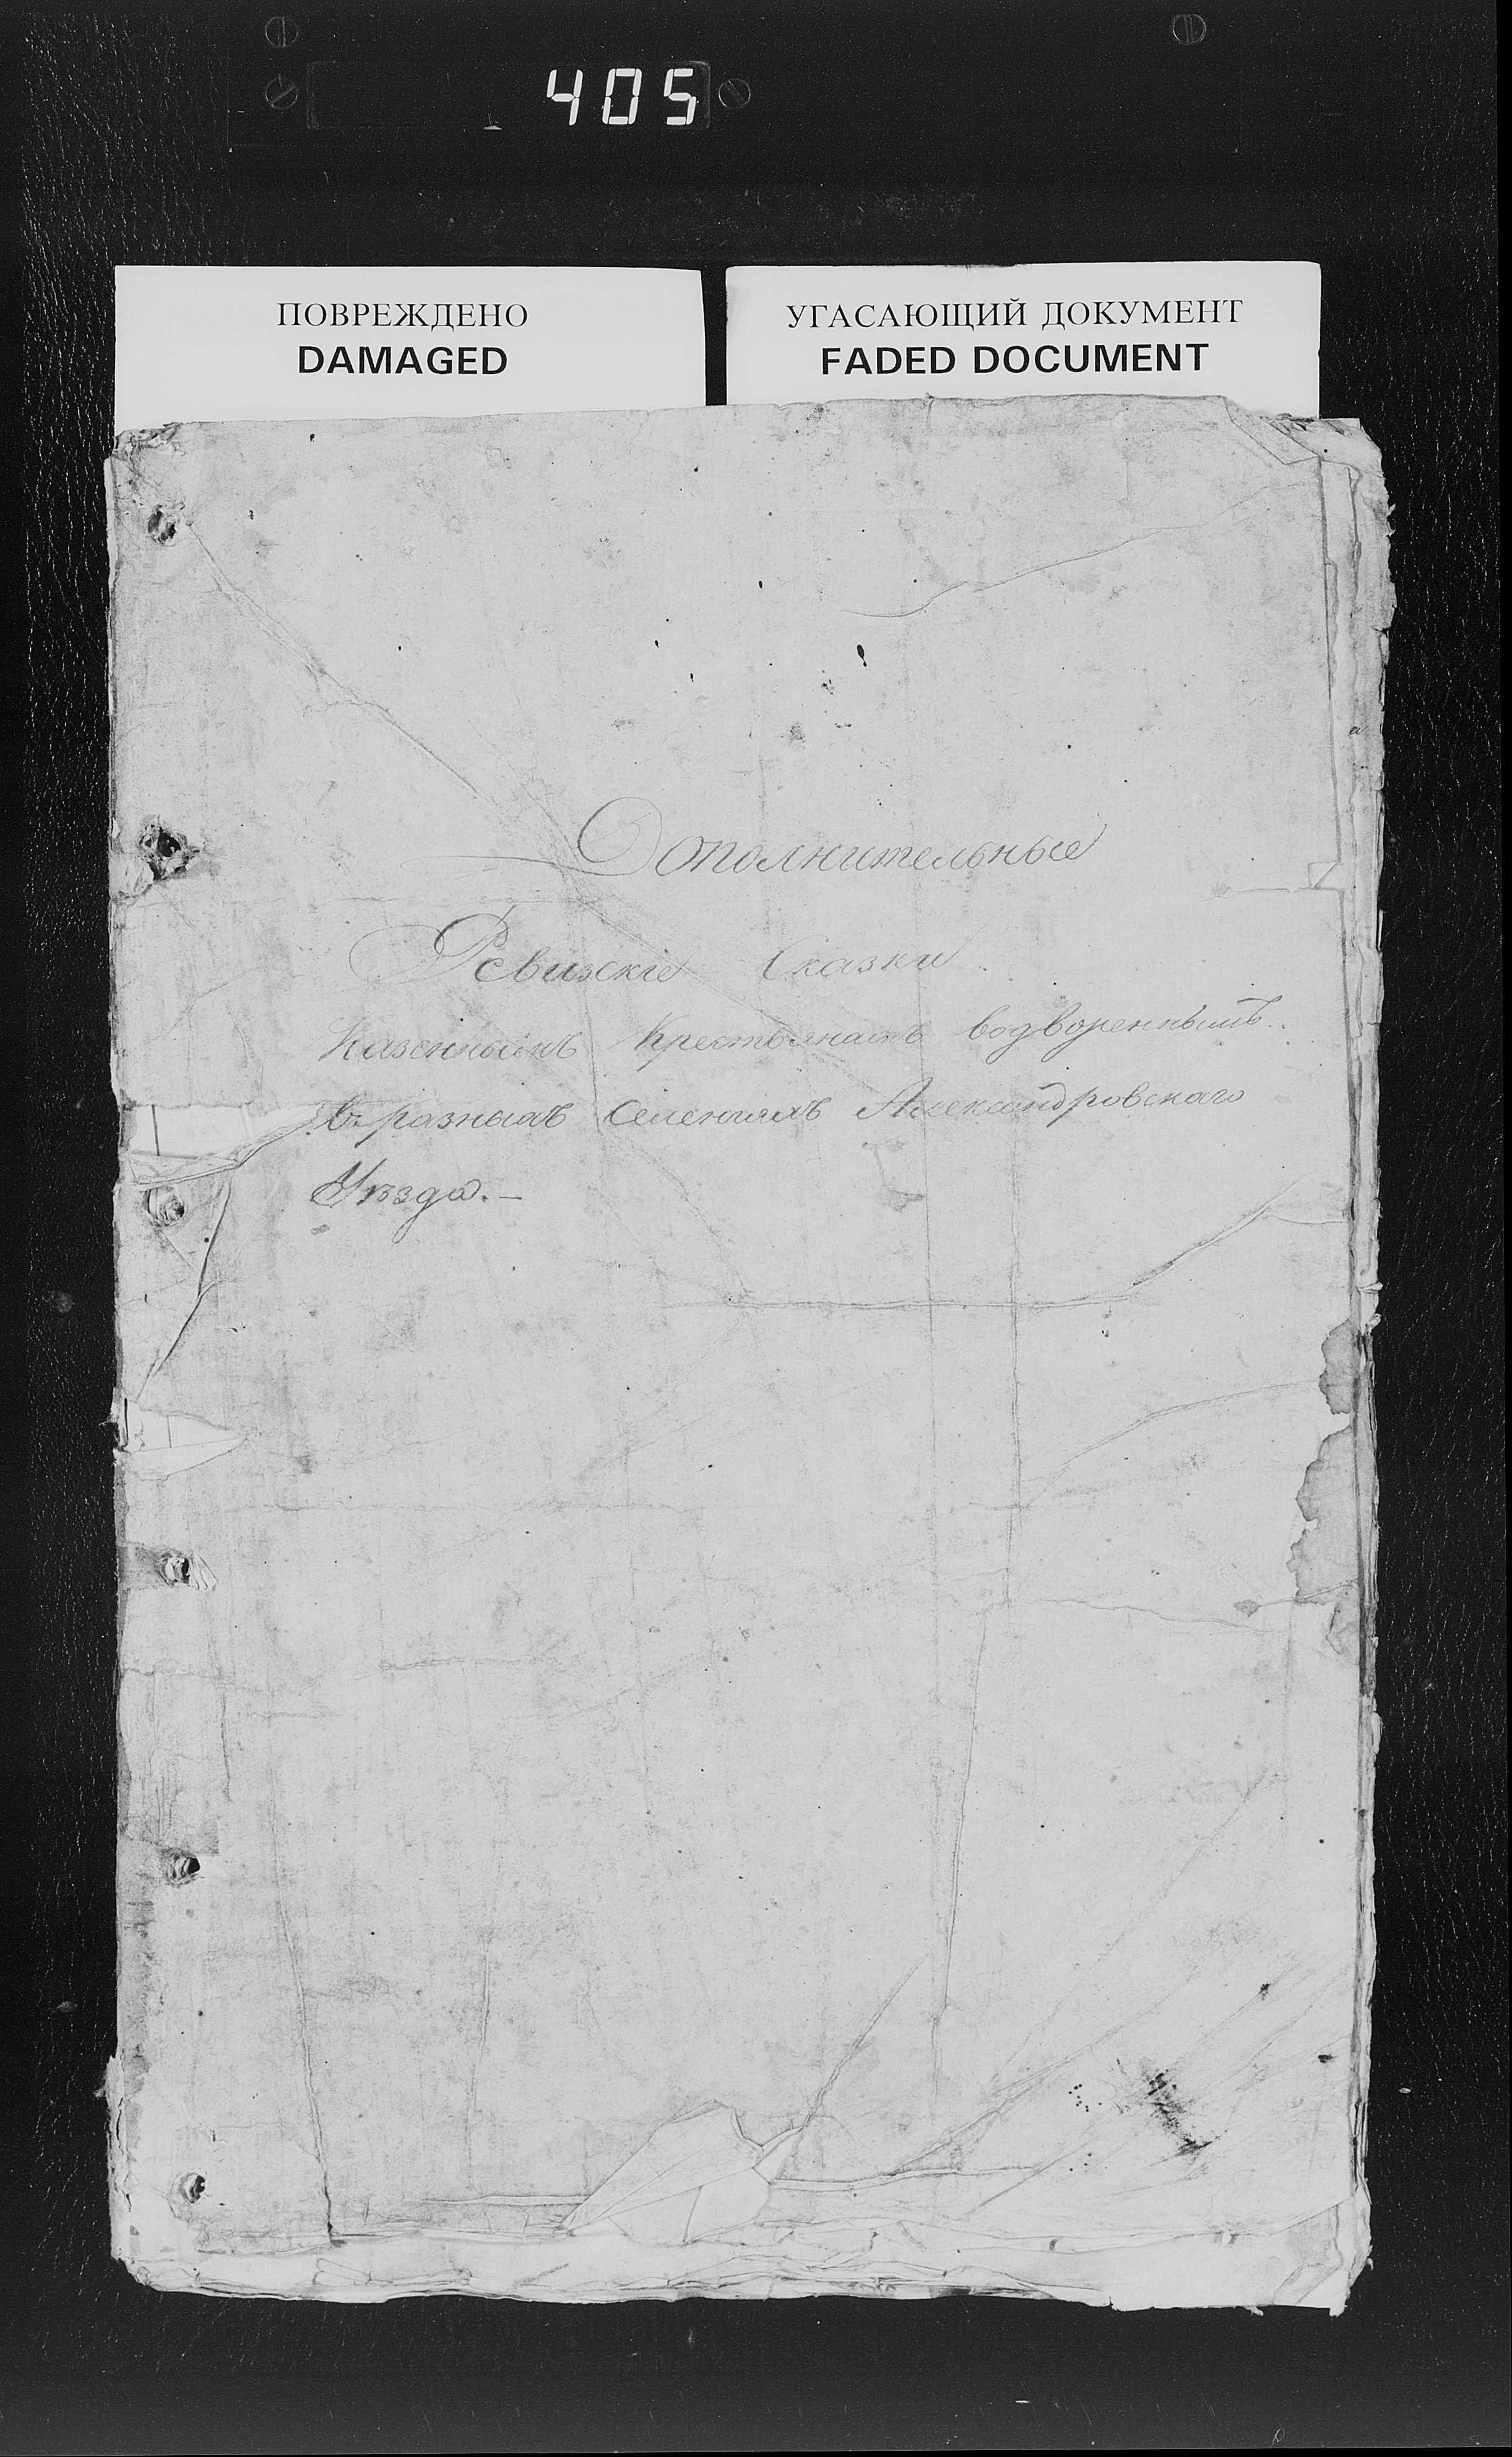 405
ПОВРЕЖДЕНО
DAMAGED
УГАСАЮЩИЙ ДОКУМЕНТ
FADED DOCUMENT
Дополнительные
Ревизскіе Сказки
Казеннымъ Крестьянамъ водвореннымъ
въ разныхъ Селеніяхъ Александровскаго
Уѣзда. —